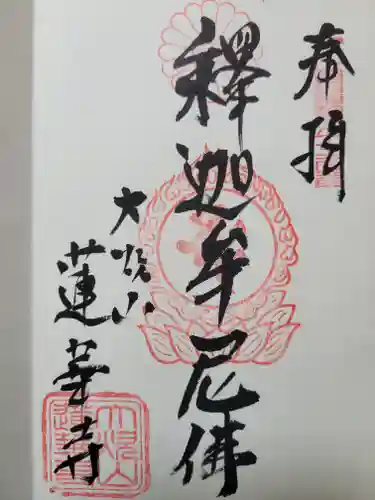 奉拝
釋迦牟尼佛
大炊山
蓮華寺